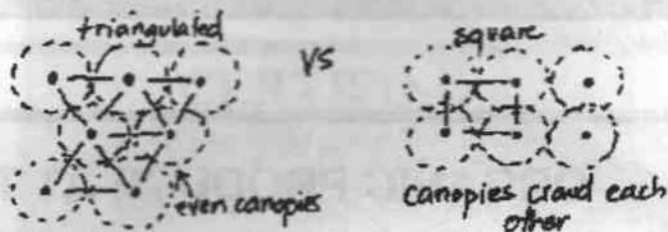 triangulated
vs
square
even canopies
canopies crowd each
other